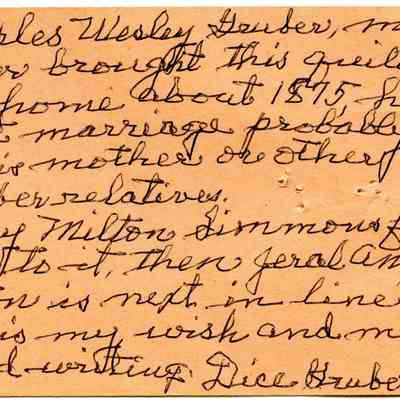 rles Wesley Gruber, m
er brought this quil
home about 1875, h
t marriage probabl
is mother or other
ber relatives.
y Milton Simmons
to it, then Jeral An
n is next in line
is my wish and m
d writing. Dice Gruber